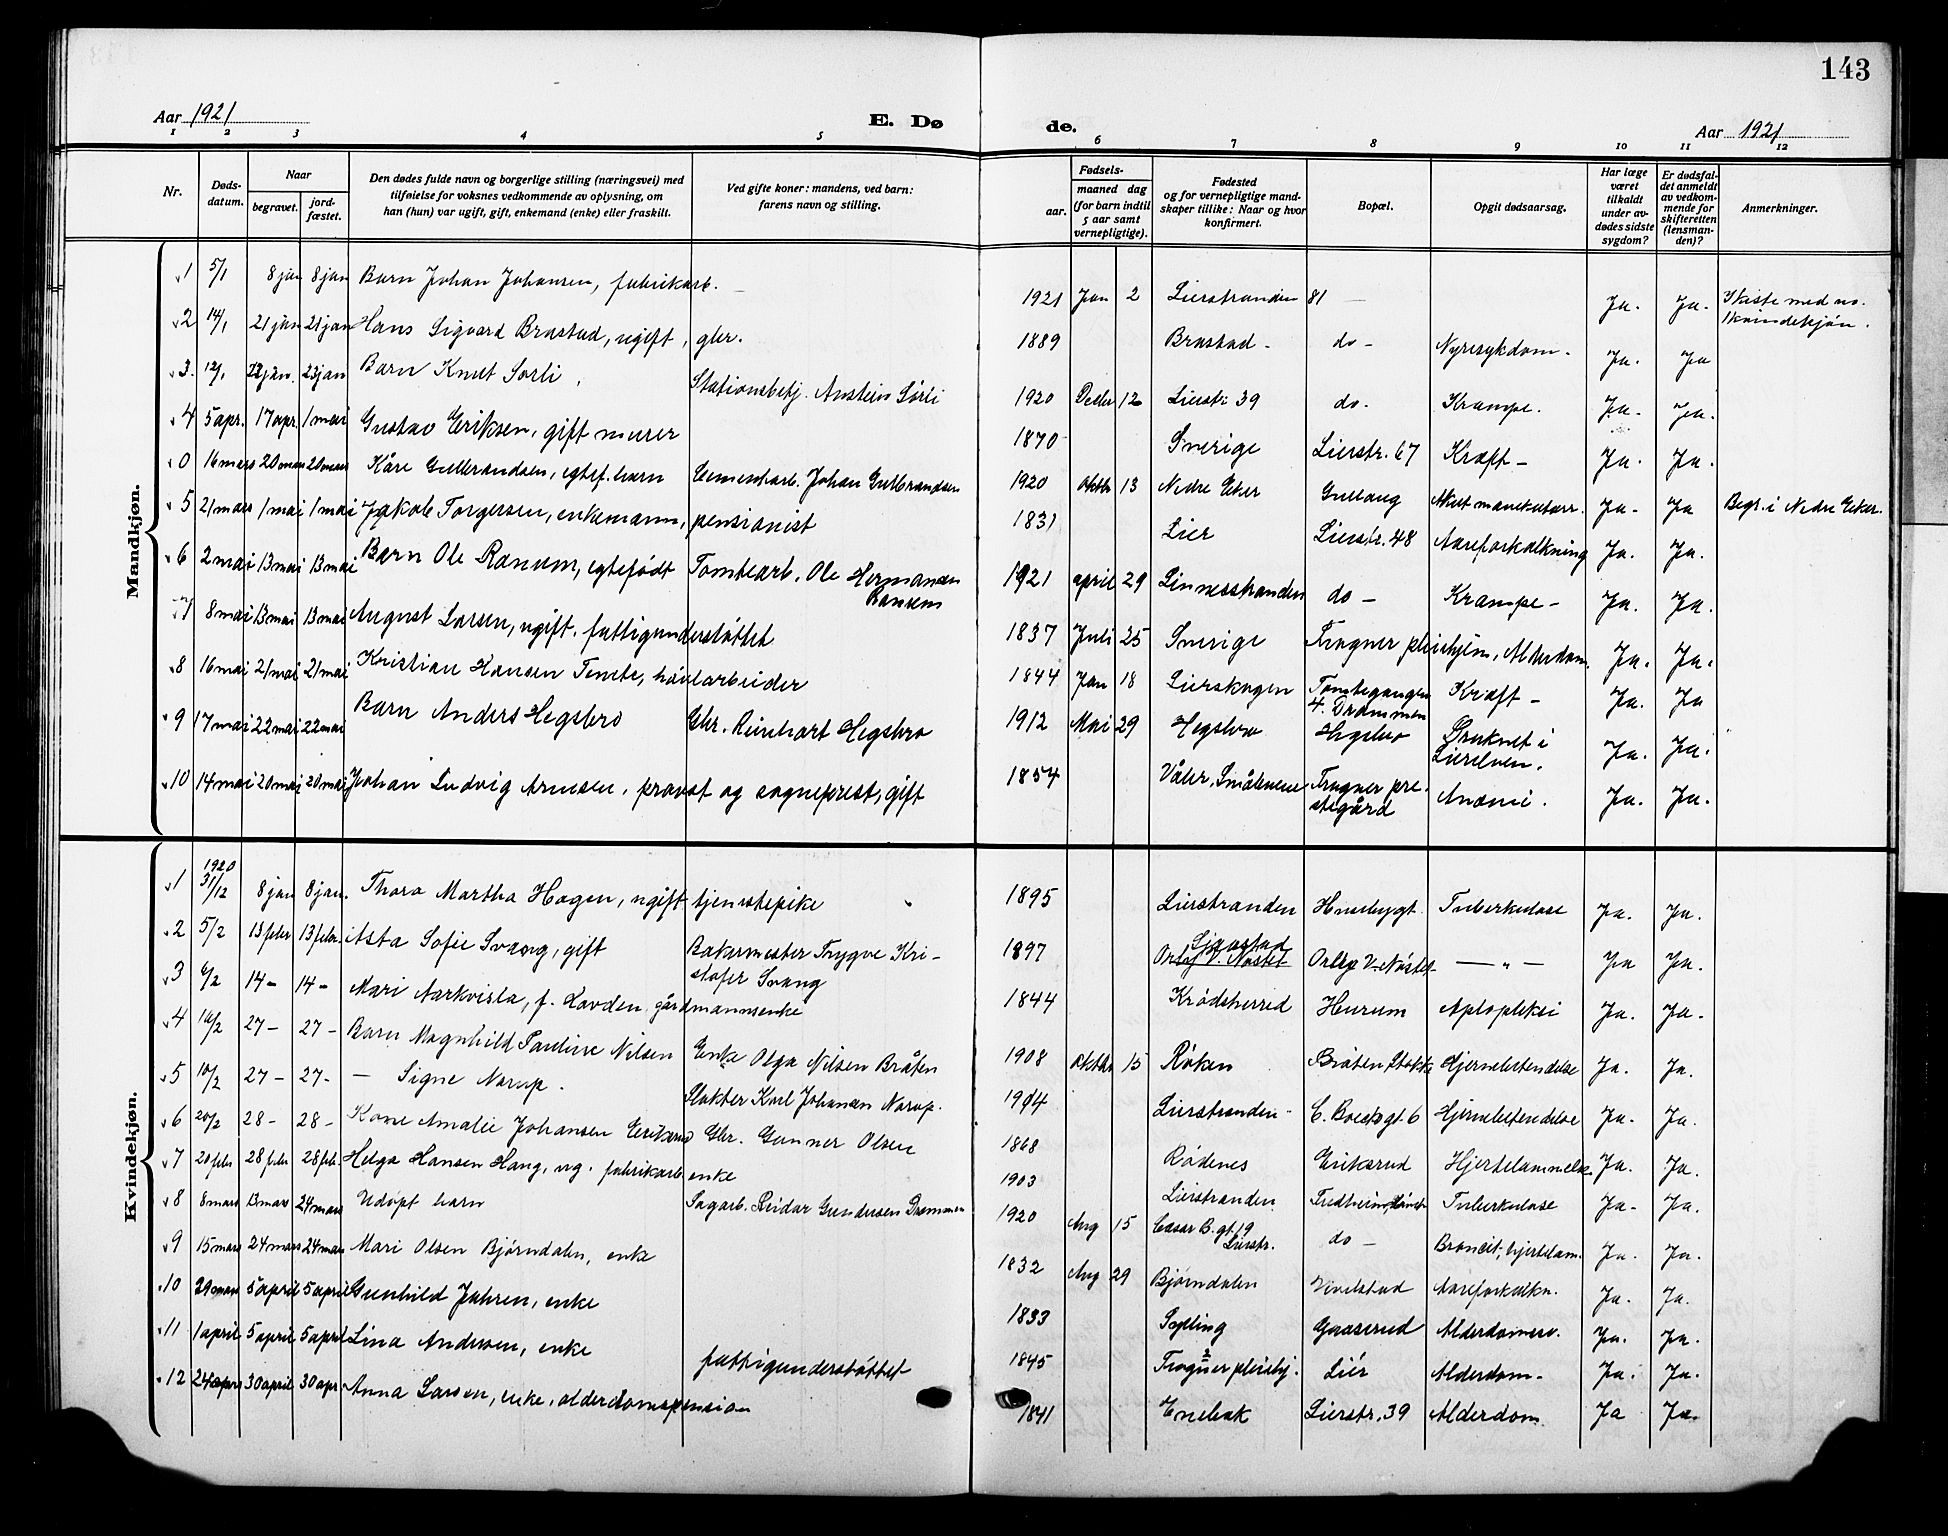 143
Aar 1921
E. Døde.
Aar 1921
1 2 3 4 5 6 7 8 9 10 11 12
Nr.
Døds-
datum.
Naar
begravet.
jord-
fæstet.
Den dødes fulde navn og borgerlige stilling (næringsvei) med
tilføielse for voksnes vedkommende av oplysning, om
han (hun) var ugift, gift, enkemand (enke) eller fraskilt.
Ved gifte koner: mandens, ved barn:
farens navn og stilling.
Fødsels-
aar.
maaned dag
(for barn indtil
5 aar samt
vernepligtige).
Fødested
og for vernepligtige mand-
skaper tillike: Naar og hvor
konfirmert.
Bopæl.
Opgit dødsaarsag.
Har læge
været
tilkaldt
under av-
dødes sidste
sygdom?
Er dødsfal-
det anmeldt
av vedkom-
mende for
skifteretten
(lensman-
den)?
Anmerkninger.
Mandkjøn.
1 5/1 8 jan 8 jan Barn Johan Johansen, fabrikarb. — 1921 Jan 2 Lierstranden 81 — Ja. Ja. I kiste med no.
1 kvindekjøn.
2 14/1 21 jan 21 jan Hans Sigvard Brastad, ugift, gbr. 1889 Brastad - do - Nyresykdom - Ja. Ja
3. 12/1 22 jan. 23 jan Barn Knut Sørli, Stationsbetj. Anstein Sørli 1920 Decbr 12 Lierstr 39 do- Krampe. Ja- Ja.
4 5 apr. 17 apr. 1 mai Gustav Eriksen, gift murer 1870 Sverige Lierstr. 67 Kræft - Ja. Ja.
0 16 mars 20 mars 20 mars Kåre Gulbrandsen, egtef. barn Cementarb. Johan Gulbrandsen 1920 Oktbr 13 Nedre Eker Gullaug Akut mavekatarr. Ja- Ja Begr. i Nedre Eker.
5 21 mars 1 mai 1 mai Jakob Torgersen, enkemann, pensionist 1831 Lier Lierstr. 48 Aareforkalkning Ja. Ja.
6 2 mai 13 mai 13 mai Barn Ole Ranum, egtefødt Tomtearb. Ole Hermansen
Ransem 1921 april 29 Linnesstranden do - Krampe - Ja. Ja.
7 8 mai 13 mai 13 mai August Larsen, ugift, fattigunderstøttet 1837 Juli 25 Sverige Frogner pleiehjem, Alderdom. Ja. Ja.
8 16 mai 21 mai 21 mai Kristian Hansen Temte, høvlarbeider 1844 Jan 18 Lierskogen Tomtegangen
4. Drammen Kræft - Ja. Ja
9 17 mai 22 mai 22 mai Barn Anders Hegsbro Gbr. Reinhart Hegsbro 1912 Mai 29 Hegsbro Hegsbro Druknet i
Lierelven. Ja. Ja.
10 14 mai 20 mai 20 mai Johan Ludvig Arnesen, provst og sogneprest, gift 1854 Våler, Smålenene Frogner pre-
stegård Anæmi. Ja. Ja.
Kvindekjøn.
1 1920
31/12 8 jan 8 jan. Thora Martha Hagen, ugift tjenstepike 1895 Lierstranden Husebygt. Tuberkulose Ja. Ja.
2 5/2 13 febr 13 febr. Asta Sofie Svang, gift Bakermester Trygve Kri-
stofer Svang 1897 Sjaastad
Orly V. Nøstet Orly V. Nøstet — „ — Ja Ja.
3 6/2 14 - 14 - Mari Aarkvisla, f. Lavden, gårdmannsenke 1844 Krødsherred Hurum Aplopleksi Ja. Ja.
4 10/2 27 - 27 - Barn Magnhild Pauline Nilsen Enke Olga Nilsen Bråten 1908 Oktbr 15 Røken Bråten, Stokk Hjernebetendelse Ja. Ja.
5 10/2 27 - 27 - — Signe Narup. Slakter Karl Johansen Narup. 1914 Lierstranden - C. Boeks gt. 6 Hjernebetendelse Ja. Ja.
6 20/2 28 - 28 - Kone Amalie Johansen Eriksrud Gbr. Gunner Olsen 1868 Rødenes Eriksrud Hjertelammelse Ja. Ja.
7 20 febr 28 febr 28 feb. Helga Hansen Haug, ug. fabrikarb enke 1903 Lierstranden Fredheim, Tuberkulose Ja- Ja.
8 8 mars 13 mars 24 mars Udøpt barn Sagarb. Reidar Gundersen Drammen 1920 Aug 15 Cæsar B. gt. 19
Lierstr. do - Broncit, hjertelam. Ja. Ja.
9 15 mars 24 mars 24 mars Mari Olsen Bjørndalen, enke 1832 Aug 29 Bjørndalen Vivelstad Aareforkalkn. Ja. Ja.
10 29 mars 5 april 5 april Gunhild Jahren, enke 1833 Sylling Gaaserud Alderdomssv. Ja. Ja.
11 1 april 5 april 5 april Lina Andersen, enke fattigunderstøttet 1845 Frogner pleiehj. Lier Alderdom- Ja. Ja.
12 24 apr 30 april 30 apr Anna Larsen, enke, alderdomspension 1841 Enebak Lierstr. 39 Alderdom. Ja Ja.